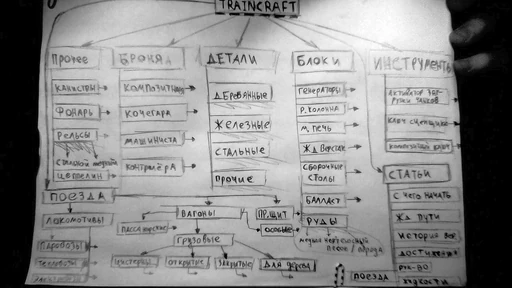 TRAINCRAFT
ПРОЧЕЕ
КАНИСТРЫ
ФОНАРЬ
РЕЛЬСЫ
ЦЕППЕЛИН
БРОНЯ
КОМПОЗИТНАЯ
КОЧЕГАРА
МАШИНИСТА
КОНТРОЛЁРА
ДЕТАЛИ
ДЕРЕВЯННЫЕ
ЖЕЛЕЗНЫЕ
СТАЛЬНЫЕ
ПРОЧИЕ
БЛОКИ
ГЕНЕРАТОРЫ
Р. КОЛОННА
М. ПЕЧЬ
ЖД ВЕРСТАК
СБОРОЧНЫЕ
СТОЛЫ
БАЛЛАСТ
РУДЫ
ИНСТРУМЕНТЫ
АКТИВАТОР
КЛЮЧ СЦЕПЩИКА
СТАТЬИ
С ЧЕГО НАЧАТЬ
ЖД ПУТИ
ИСТОРИЯ
ДОСТИЖЕНИЯ
ЖИДКОСТИ
ПОЕЗДА
ЛОКОМОТИВЫ
ПАРОВОЗЫ
ТЕПЛОВОЗЫ
ВАГОНЫ
ПАССАЖИРСКИЕ
ГРУЗОВЫЕ
ЦИСТЕРНЫ
ОТКРЫТЫЕ
ЗАКРЫТЫЕ
ДЛЯ ДЕРЕВА
ОСОБЫЕ
ПОЕЗДА